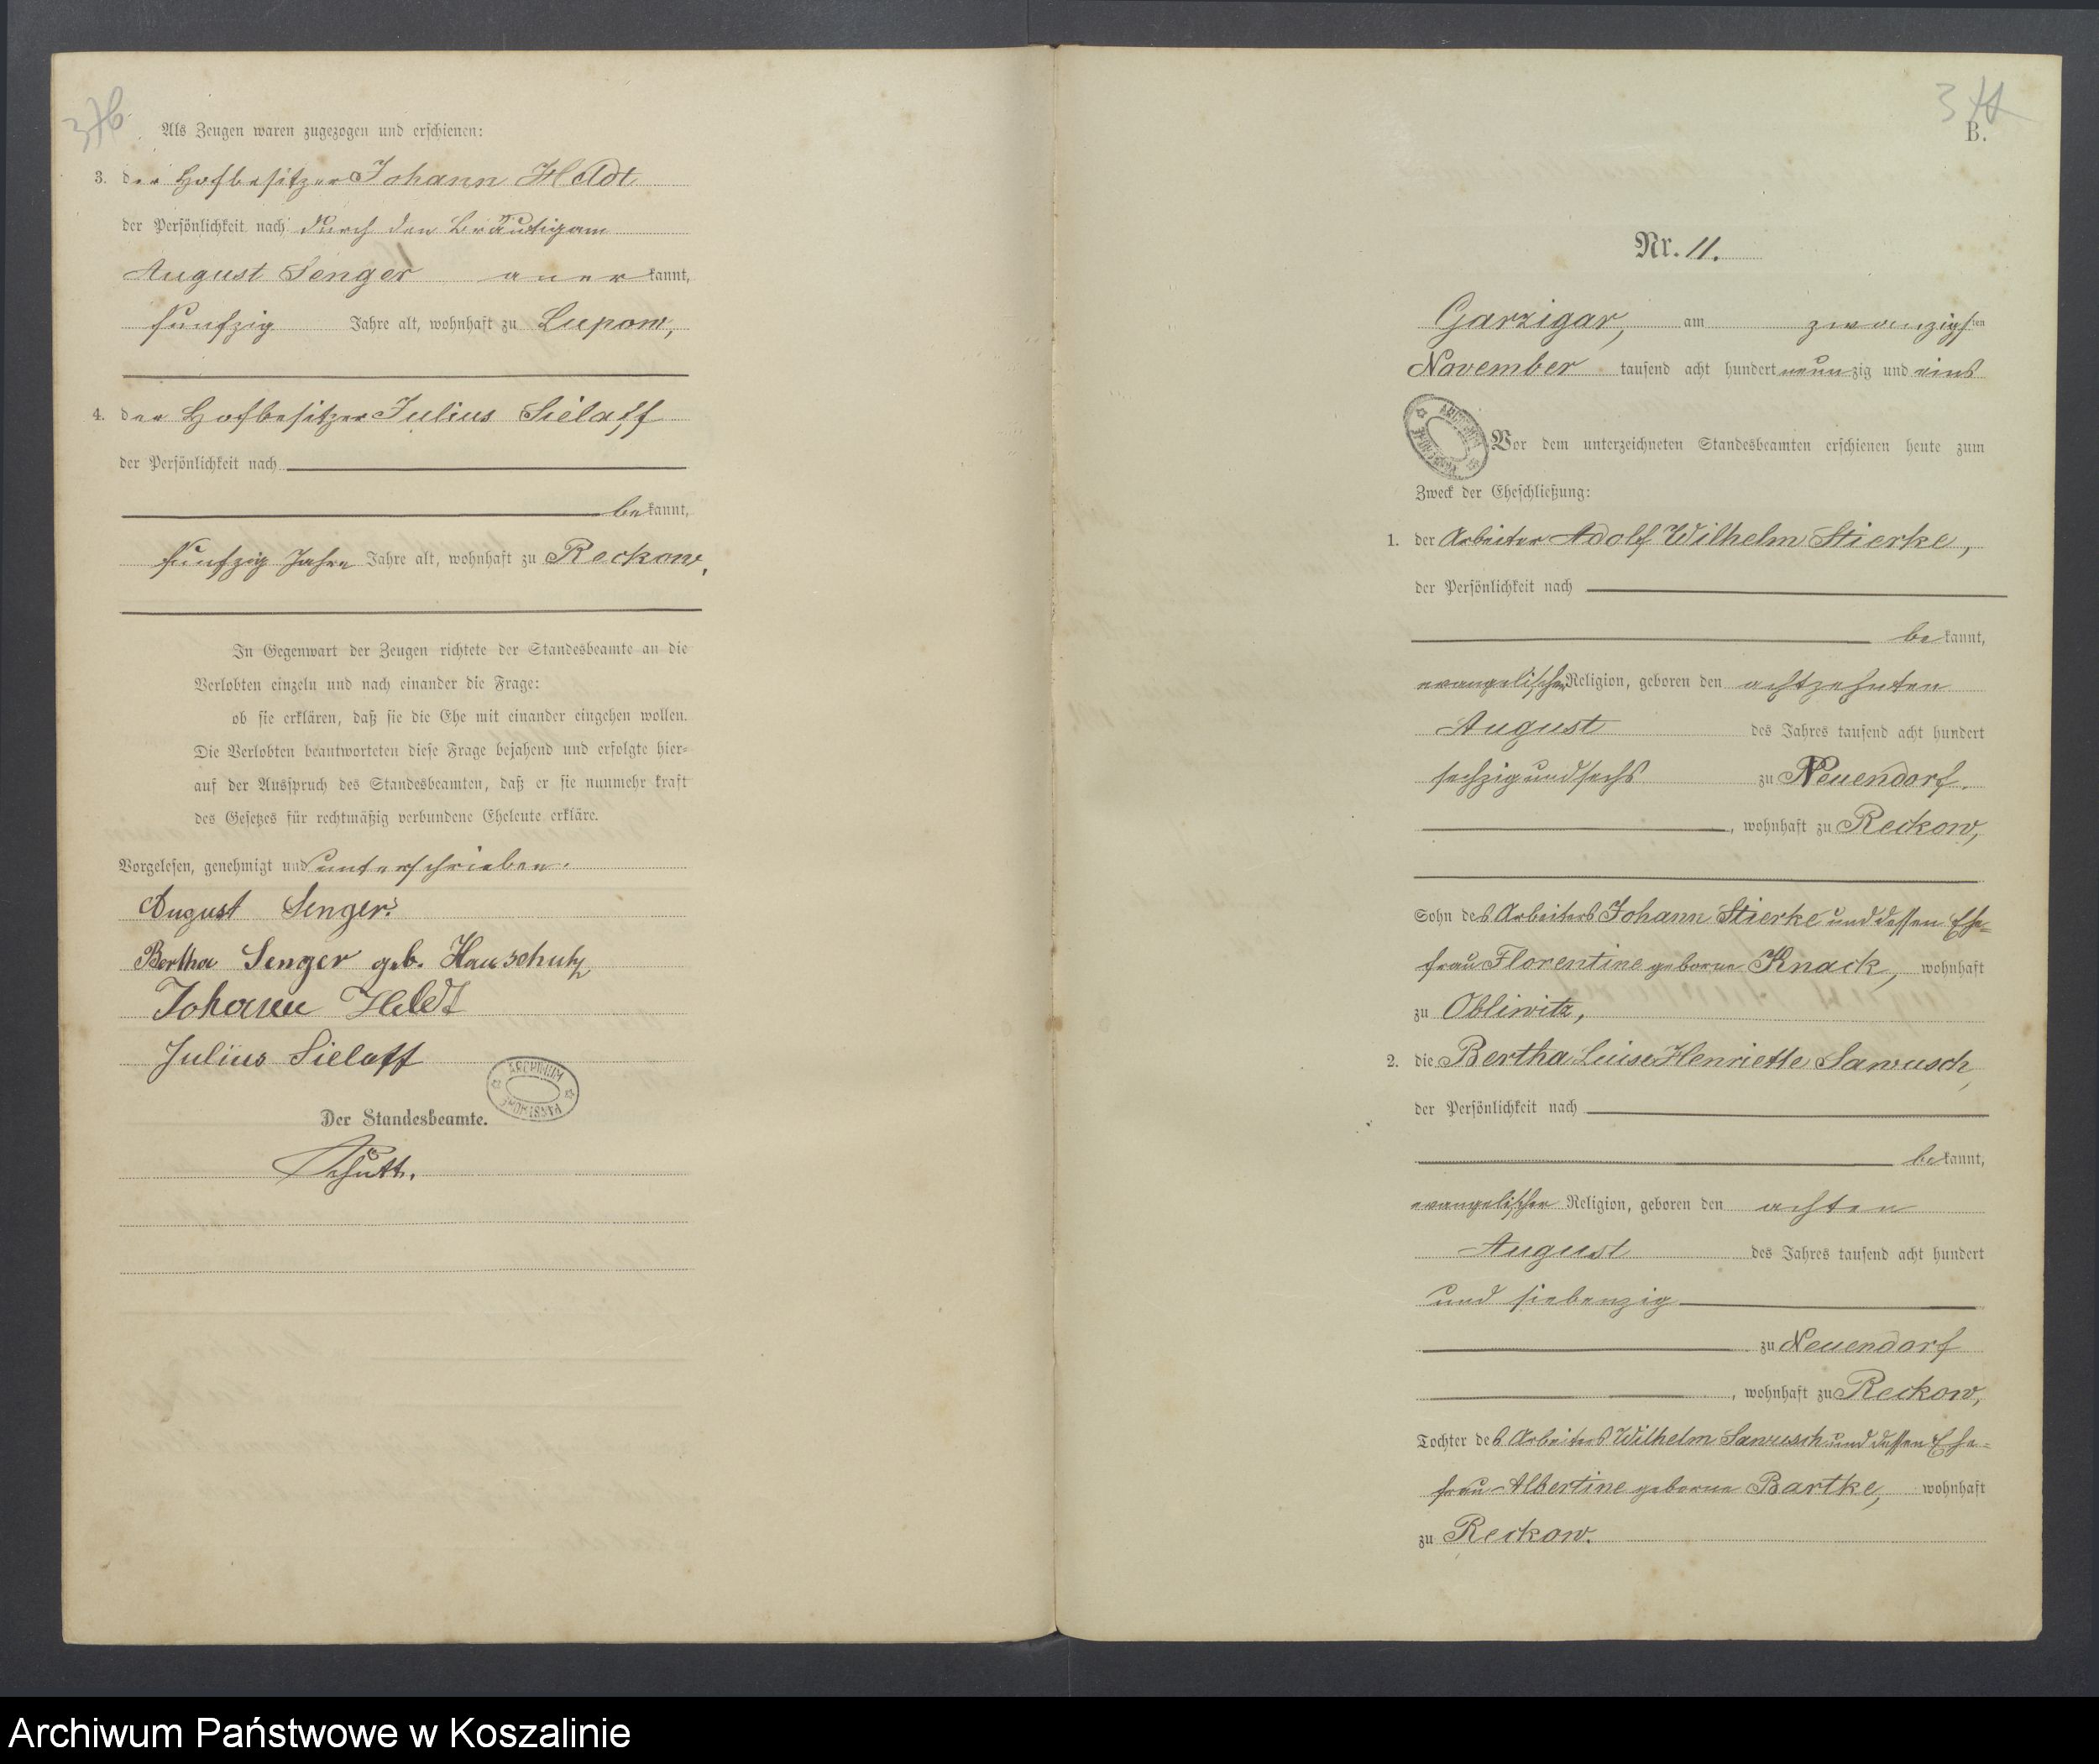 Als Zeugen waren zugezogen und erschienen:
3. der Hofbesitzer Johann Heldt
der Persönlichkeit nach durch den Bräutigam
August Senger anerkannt,
fünfzig Jahre alt, wohnhaft zu Lupow,
4. der Hofbesitzer Julius Sielaff
der Persönlichkeit nach
bekannt,
fünfzig Jahre Jahre alt, wohnhaft zu Reckow,
In Gegenwart der Zeugen richtete der Standesbeamte an die
Verlobten einzeln und nach einander die Frage:
ob sie erklären, daß sie die Ehe mit einander eingehen wollen.
Die Verlobten beantworteten diese Frage bejahend und erfolgte hier-
auf der Ausspruch des Standesbeamten, daß er sie nunmehr kraft
des Gesetzes für rechtmäßig verbundene Eheleute erkläre.
Vorgelesen, genehmigt und unterschrieben.
August Senger.
Bertha Senger geb. Hauschutz
Johann Heldt
Julius Sielaff
Der Standesbeamte.
B.
Nr. 11.
Garzigar, am zwanzigsten
November tausend acht hundert neunzig und eins
Vor dem unterzeichneten Standesbeamten erschienen heute zum
Zweck der Eheschließung:
1. der Arbeiter Adolf Wilhelm Stierke,
der Persönlichkeit nach
bekannt,
evangelischer Religion, geboren den achtzehnten
August des Jahres tausend acht hundert
sechzig und sechs zu Neuendorf.
, wohnhaft zu Reckow,
Sohn des Arbeiters Johann Stierke und dessen Ehe-
frau Florentine geborne Knack, wohnhaft
zu Obliwitz,
2. die Bertha Luise Henriette Sawusch,
der Persönlichkeit nach
bekannt,
evangelischer Religion, geboren den achten
August des Jahres tausend acht hundert
und siebenzig
zu Neuendorf
, wohnhaft zu Reckow,
Tochter des Arbeiters Wilhelm Sawusch und dessen Ehe-
frau Albertine geborne Bartke, wohnhaft
zu Reckow.
Archiwum Państwowe w Koszalinie